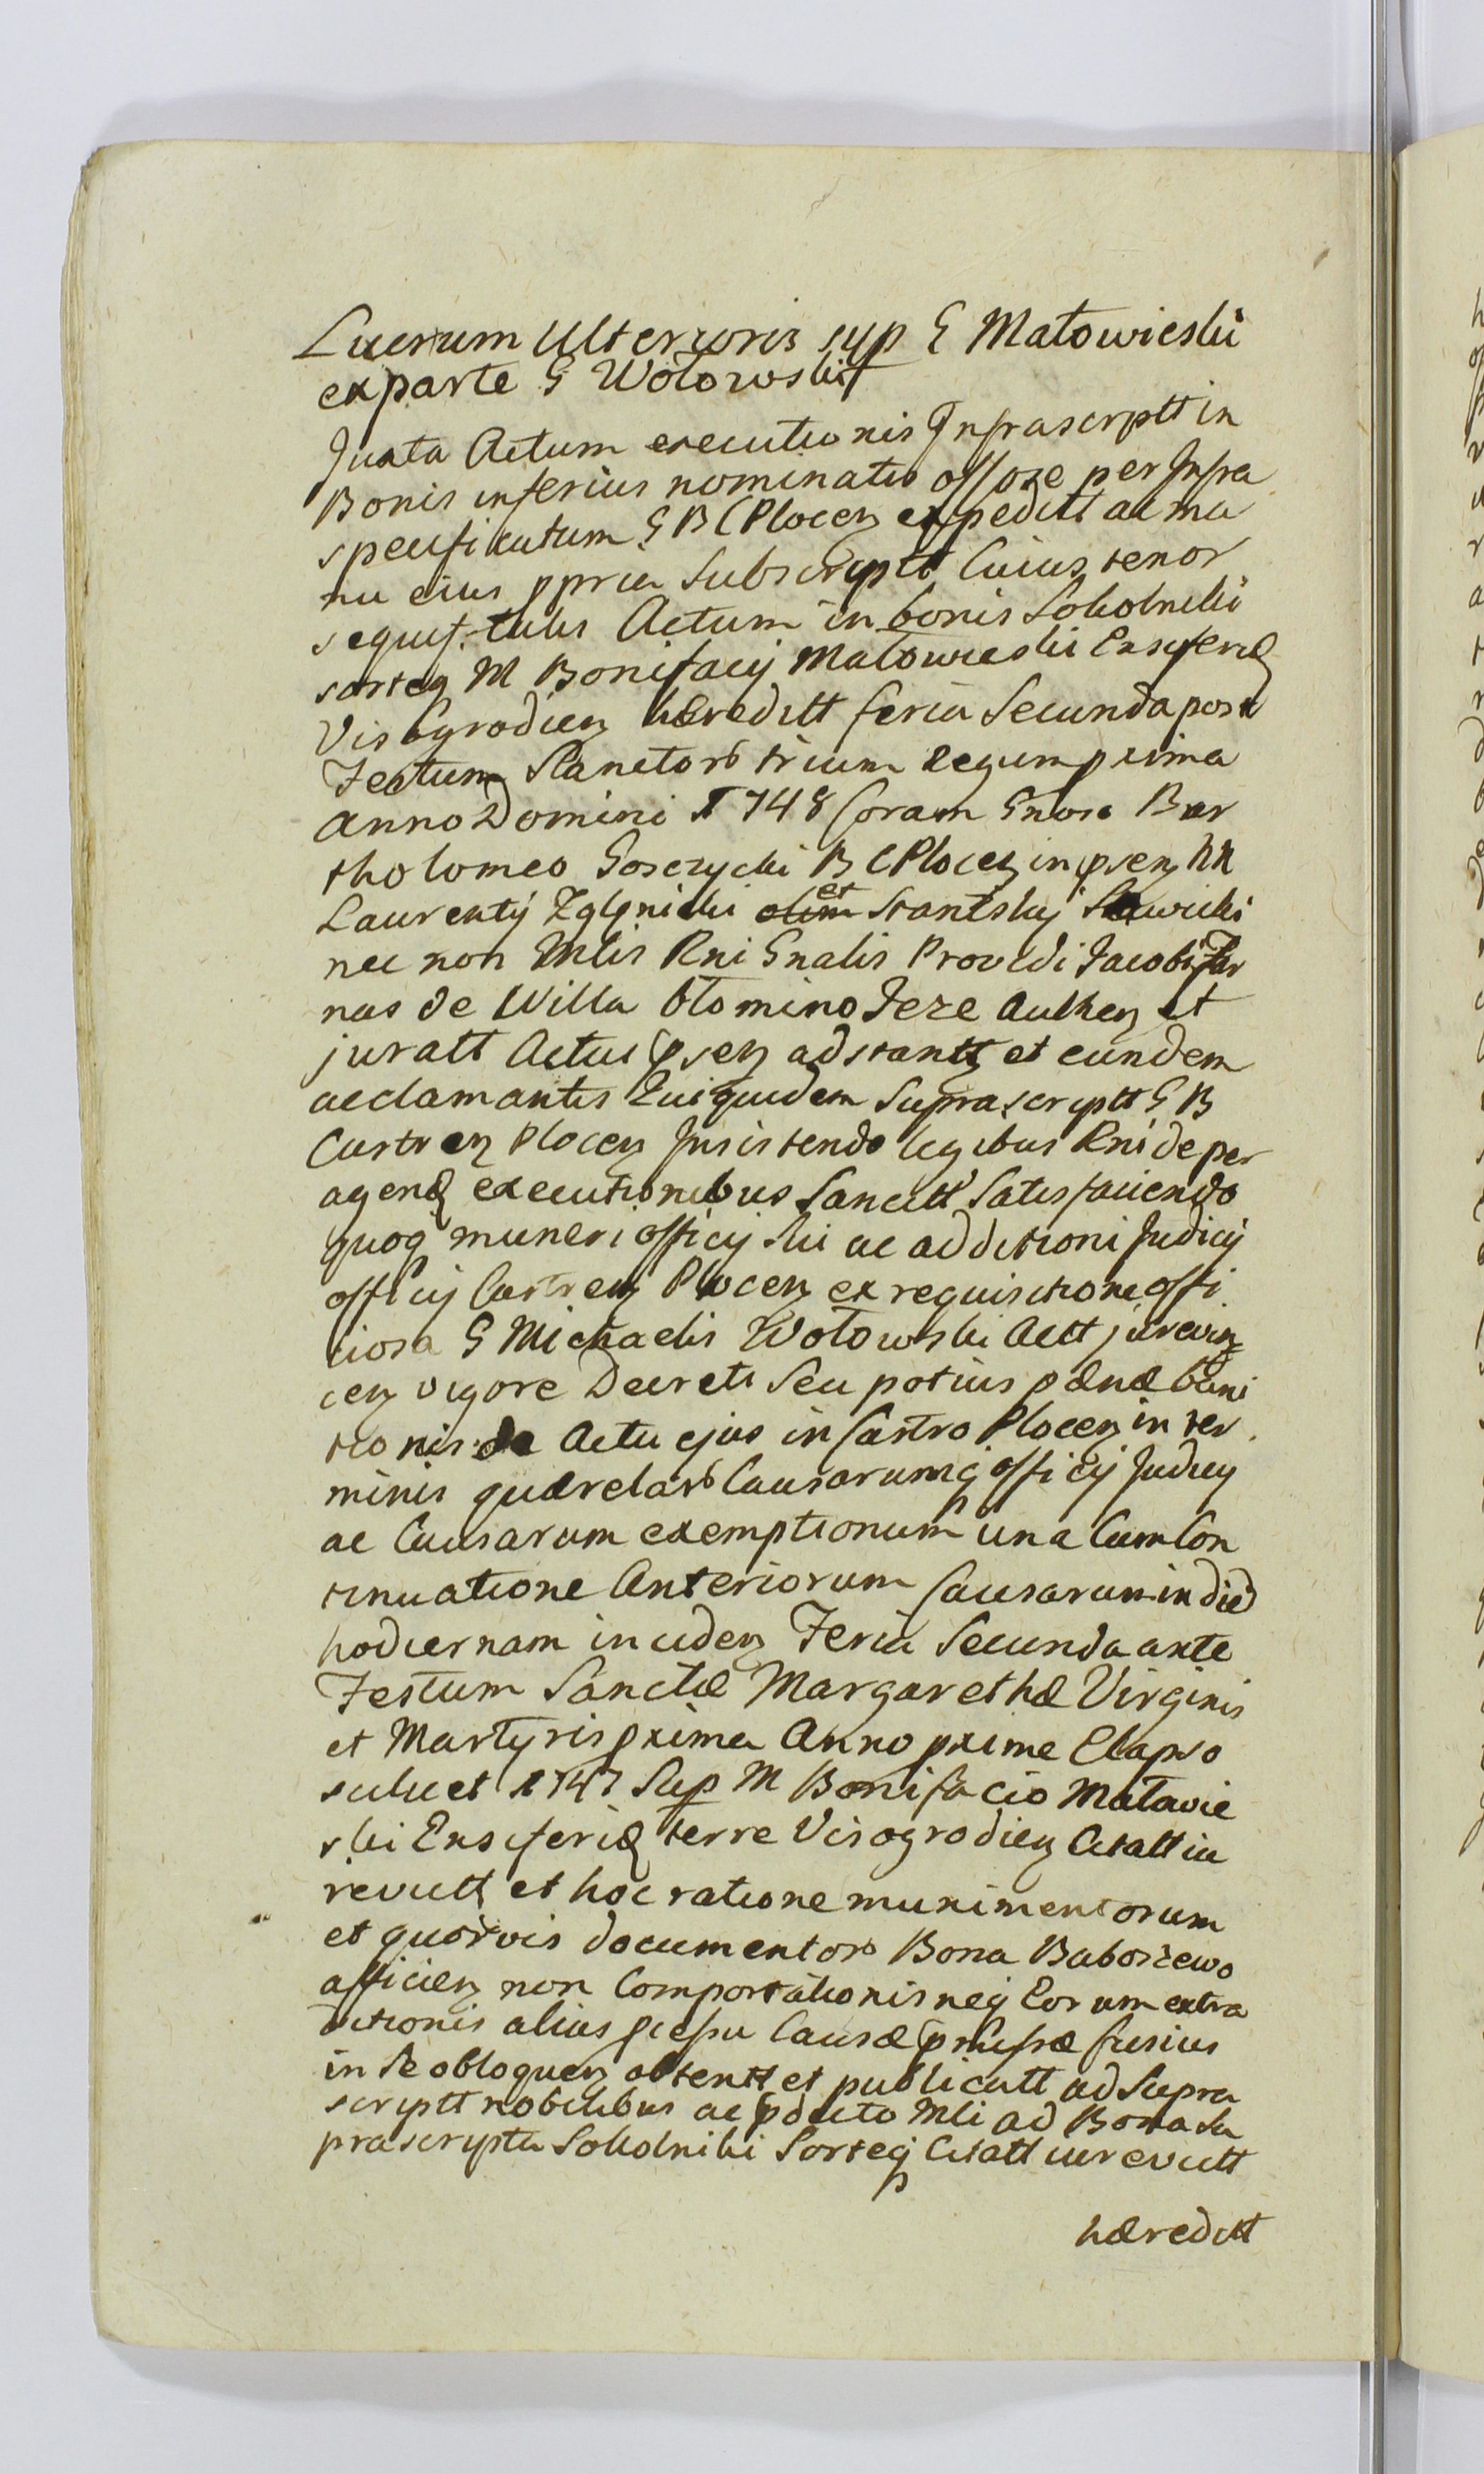 Lucrum Ulterioris sup G Matowieski
ex parte G Wołowski
Juxta Actum executionis Infrascrptt in
Bonis inferius nominatis offoze per Infra
specificatum G B C Plocen expeditt ac ma
nu eius ppria Subscriptt Cuius tenor
sequit. talis Actum in bonis Sokolniki
sorteq M Bonifacij Małowieski Ensiferid
Visogrodien hæreditt feria Secunda post
Festum Sanctorb trium Regum prima
Anno Domini 1748 Coram Gnoso Bar
tholomeo Gosczycki B C Plocen in psen NN
Laurentij Zglenicki et Stantsłaj Sławicki
nec non Mlis Rni Gnalis Providi Jacobi Jar
nas de Willa Słomino Jeze Authen et
juratt Actui psen adstantt et eundem
acclamantis Qui quidem Suprascriptt G B
Castren Plocen Insistendo legibus Rni de per
agend executionibus Sancitt Satisfaciendo
quoq muneri officij sui ac additioni Judicij
officij Castren Plocen ex requisitione offi
ciosa G Michaelis Wołowski Actt jurevin
cen vigore Decreti Seu potius pænæ bani
tionis de Actu ejus in Castro Plocen in ter
minis quærelarb Causarumq officij Judicij
ac Causarum exemptionum una Cum Con
tinuatione Anteriorum Causarum in died
hodiernam inciden Feria Secunda ante
Festum Sanctæ Margarethæ Virginis
et Martyris prima Anno pxime Elapso
scilicet 1747 Sup M Bonifacio Matavie
ski Ensiferid terre Visogrodien Citatt iu
revictt et hoc ratione munimentorum
et quorvis documentor Bona Baboszewo
afficien non Comportationis neq Eorum extra
ditionis alias pcessu Causæ pmissæ fusius
in se obloquen obtentt et publicatt ad Supra
scriptt nobilibus ac pdicto Mli ad Bona Su
prascripta Sokolniki Sorteq Citatt iurevictt
hæreditt